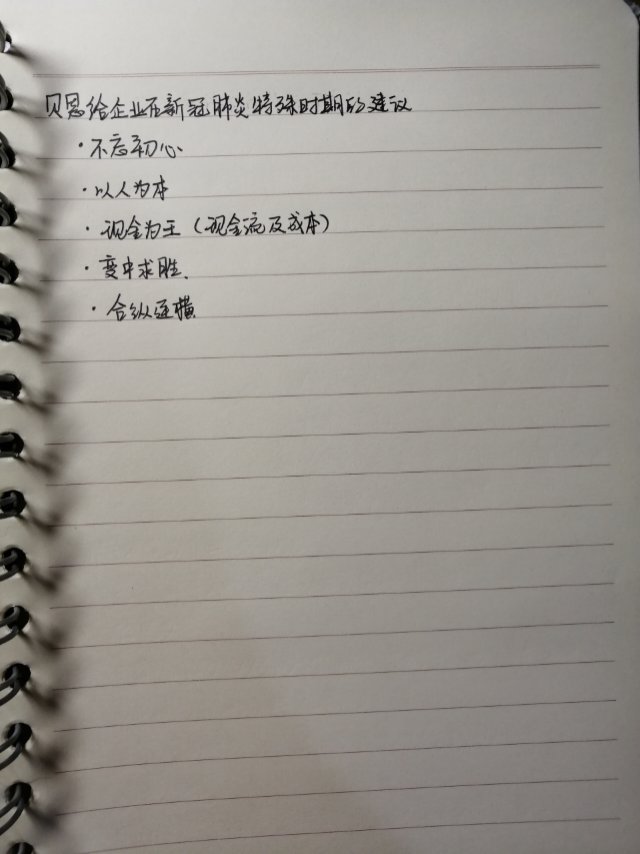 贝恩给企业在新冠肺炎特殊时期的建议
·不忘初心
·以人为本
·现金为王（现金流及成本）
·变中求胜.
·合纵连横